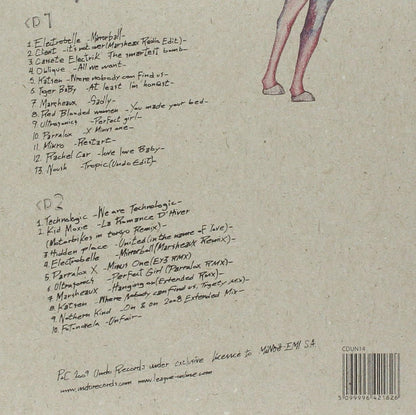 CD 1
1. Electrobelle -Mirrorball-
2. Client -it's not over (Marsheaux Remix Edit)-
3. Cassete Electrik The smartest bomb-
4. Oblique -All we want-
5. Katsen -Where nobody can find us-
6. Tiger Baby -At least I'm honest-
7. Marsheaux -Sadly-
8. Red Blooded women -You made your bed-
9. Ultrasonics -Perfect girl-
10. Parralox -X Minus one-
11. Mikro -Restart-
12. Rachel Car -love love Baby-
13. Noush -Tropic (Undo Edit)-
CD 2
1. Technologic -We are Technologic-
2. Kid Moxie -La Romance D'Hiver
(Motorbikes in tokyo Remix)-
3. Hidden place -United (in the name of love)-
4. Electrobelle -Mirrorball (Marsheaux Remix)-
5. Parralox X -Minus One (EX3 RMX)
6. Ultrasonics -Perfect Girl (Parralox RMX)
7. Marsheaux -Hanging on (Extended RMX)-
8. Katsen -Where Nobody can find us, mix-
9. Nothern Kind -On & on 2008 Extended Mix-
10. Fotonovela -Unfair-
P&C 2009 Undo Records under exclusive licence to Minos-EMI S.A.
www.undorecords.com www.league-online.com
CDUN14
5 099996 421826